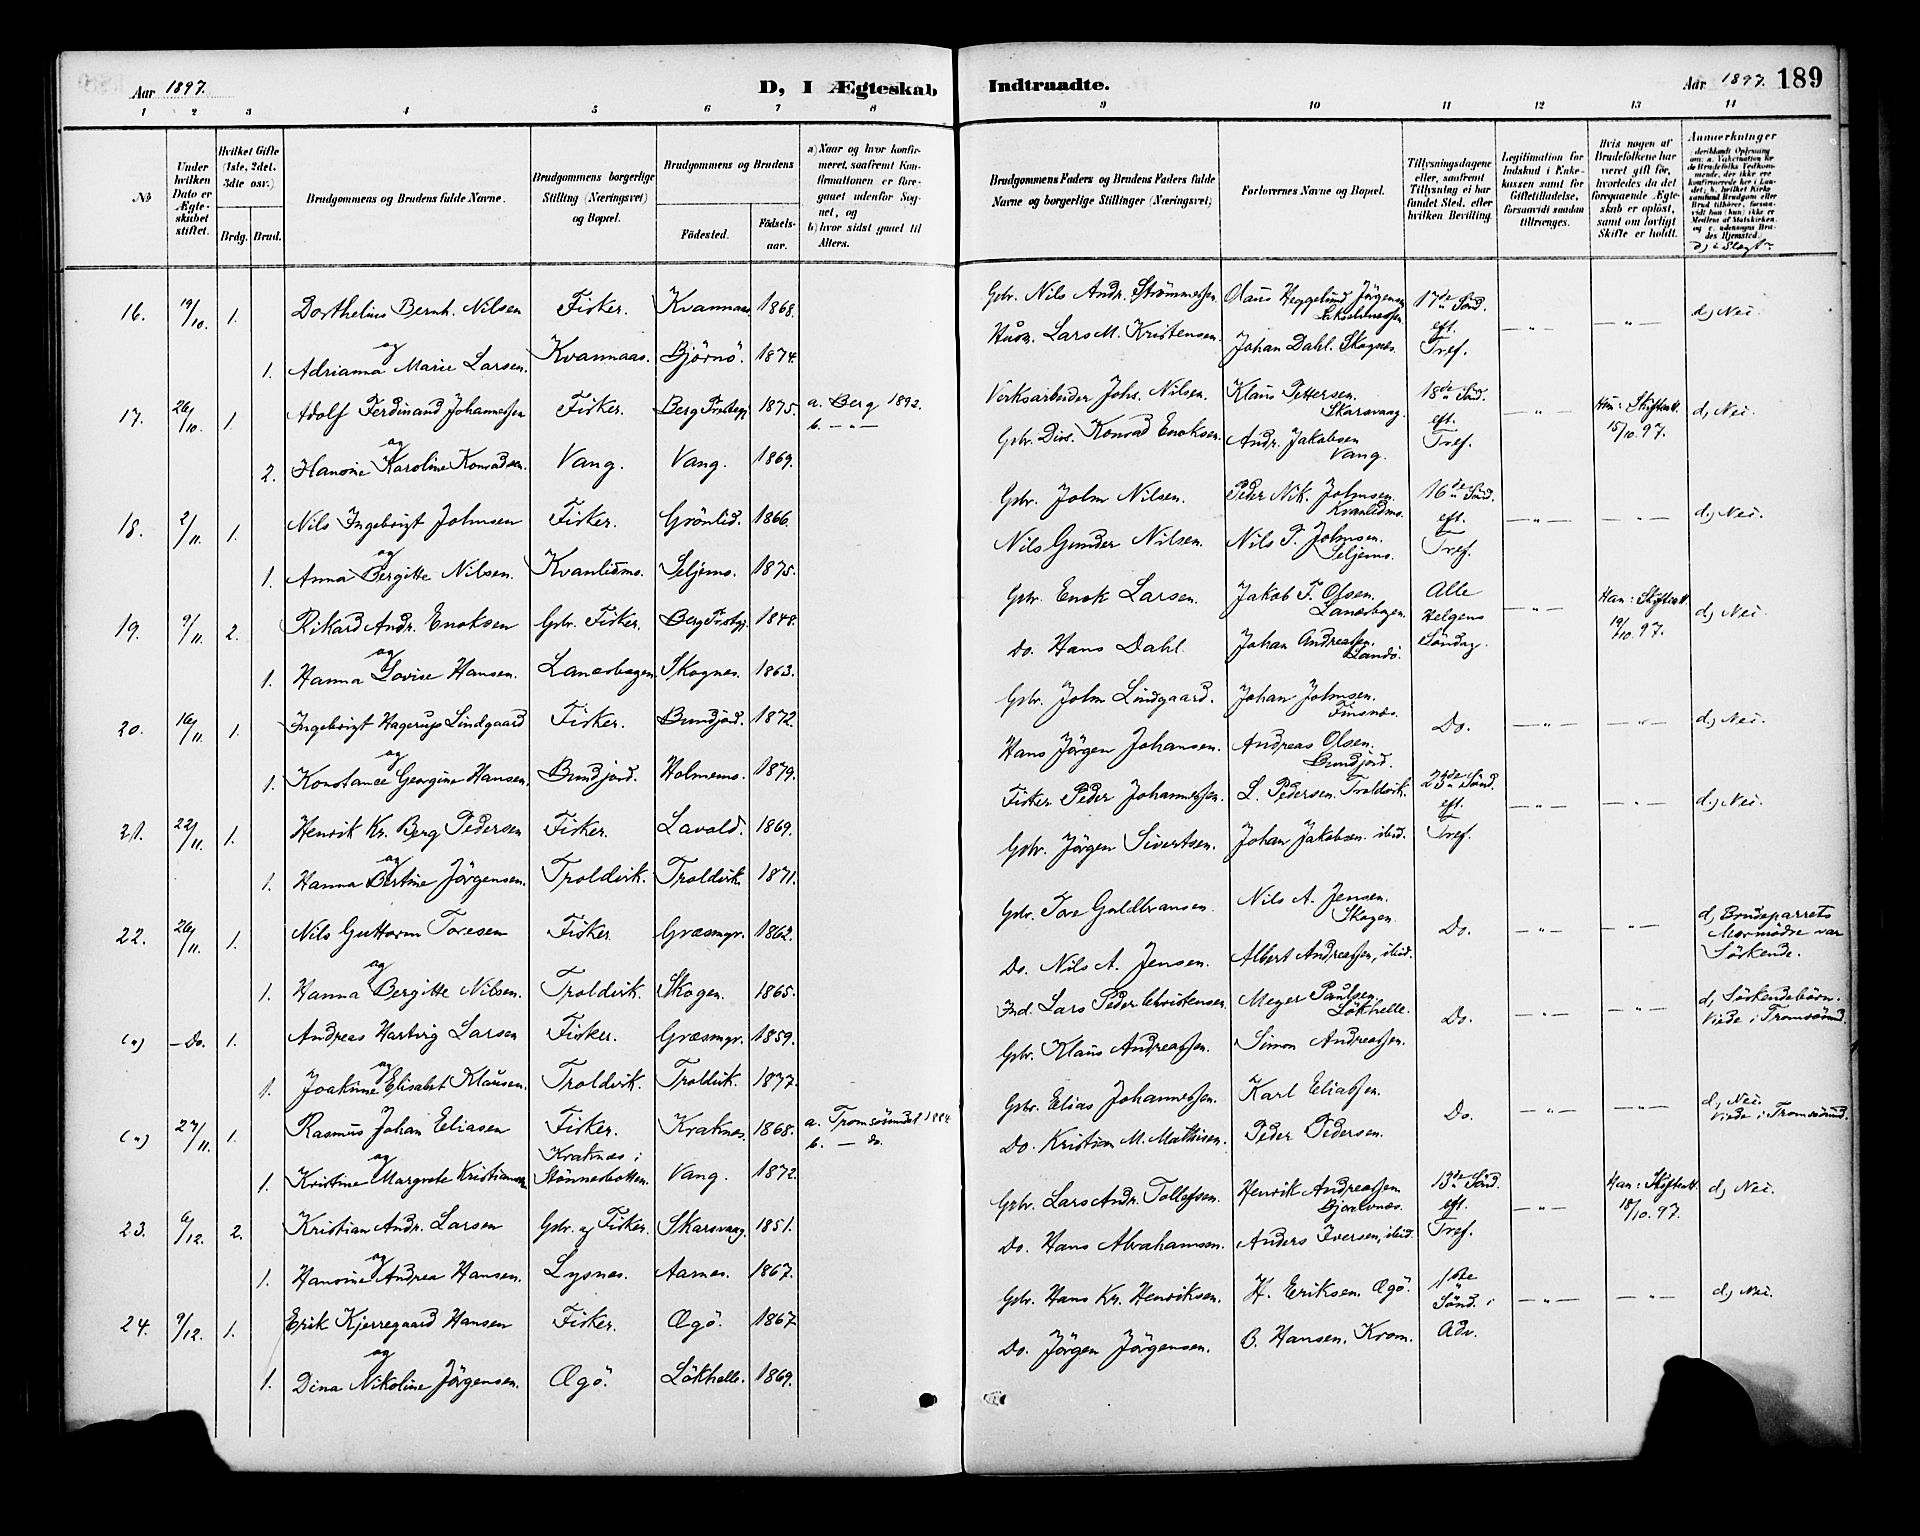 Aar 1897.
D, I Ægteskab
1 2 3 4 5 6 7 8
No
Under hvilken Dato er Ægteskabet stiftet.
Hvilket Gifte (1ste, 2det, 3die osv.)
Brdg. Brud.
Brudgommens og Brudens fulde Navne.
Brudgommens borgerlige Stilling (Næringsvei) og Bopæl.
Brudgommens og Brudens
Födested. Födselsaar.
a) Naar og hvor konfirmeret, saafremt Konfirmationen er foregaaet udenfor Sognet, og
b) hvor sidst gaaet til Alters.
16. 19/10. 1. Dorthelius Bernh. Nilsen Fisker. Kvannaas 1868.
og
1. Adrianna Marie Larsen. Kvannaas. Björnö. 1874.
17. 26/10 1 Adolf Ferdinand Johannessen Fisker. Berg Prstgj. 1875. a. Berg 1892.
b. — " —
og
2. Hansine Karoline Konradsen. Vang. Vang. 1869.
18. 2/11. 1. Nils Ingebrigt Johnsen Fisker. Grönlid. 1866.
og
1. Anna Bergitte Nilsen. Kvanlidmo. Seljemo. 1875.
19. 9/11. 2. Rikard Andr. Enoksen Gbr. Fisker. Berg Prstgj. 1848.
og
1. Hanna Lovise Hansen. Lanesbogen. Skognes. 1863.
20. 16/11. 1. Ingebrigt Hagerup Lindgaard Fisker. Bundjord. 1872.
og
1. Konstance Georgine Hansen. Bundjord. Holmemo. 1879.
21. 22/11 1. Henrik Kr. Berg Pedersen Fisker. Lavold. 1869.
og
1. Hanna Bertine Jörgensen. Troldvik. Troldvik. 1871.
22. 26/11. 1. Nils Guttorm Toresen Fisker. Græsmyr. 1862.
og
1. Hanna Bergitte Nilsen. Troldvik. Skogen. 1865.
(") — Do. 1. Andreas Hartvig Larsen Fisker. Græsmyr. 1859.
og
1. Joakime Elisabet Klausen. Troldvik. Troldvik. 1877.
(") 27/11. 1. Rasmus Johan Eliasen Fisker. Kraknes. 1868. a. Tromsösundet 1884
b. — do.
og Kraknæs i
1. Kristine Margrete Kristiansen Stönnesbotten. Vang. 1872.
23. 6/12. 2. Kristian Andr. Larsen Gbr. og Fisker. Skarsvaag. 1851.
og
1. Hansine Andrea Hansen. Lysnes. Aarnes. 1867.
24. 9/12. 1. Erik Kjerregaard Hansen Fisker. Ægö. 1867
og
1. Dina Nikoline Jörgensen. Ægö. Lökhelle. 1869.
Indtraadte.
Aar 1897. 189
9 10 11 12 13 14
Brudgommens Faders og Brudens Faders fulde Navne og borgerlige Stillinger (Næringsvei)
Forlovernes Navne og Bopæl.
Tillysningsdagene eller, saafremt Tillysning ei har fundet Sted, efter hvilken Bevilling.
Legitimation for Indskud i Enkekassen samt for Giftetilladelse, forsaavidt saadan tiltrænges.
Hvis nogen af Brudefolkene har været gift før, hvorledes da det foregaaende Ægteskab er opløst, samt om lovligt Skifte er holdt.
Anmærkninger
d) i Slægt
Gbr. Nils Andr. Strömmessen. Olaus Heggelund Jörgensen 17de Sönd. — " — — " — d, Nei.
Husm. Lars M. Kristensen. Johan Dahl. Skognes. eft. Tref.
Verksarbeider Johs. Nilsen. Klaus Pettersen. Skarsvaag. 18de Sönd. — " — Hun: Skifteatt. 15/10. 97. d, Nei.
Gbr. Konrad Enoksen. Andr. Jakobsen Vang. eft. Tref.
Gbr. John Nilsen. Peder Nik. Johnsen. Kvanlidmo. 16de Sönd. — " — — " — d, Nei.
Nils Gunder Nilsen. Nils P. Johnsen. Seljemo. eft. Tref.
Gbr. Enok Larsen. Jakob F. Olsen. Lanesbogen. Alle Helgens — " — Han: Skifteatt. 19/10. 97. d, Nei.
Do. Hans Dahl. Johan Andreassen. Sandö. Söndag.
Gbr. John Lindgaard. Johan Johnsen. Finsnes. Do. — " — — " — d, Nei.
Hans Jörgen Johansen. Andreas Olsen. Bundjord.
Fisker Peder Johannessen. L. Pedersen. Troldvik. 23de Sönd. — " — — " — d, Nei.
Gbr. Jörgen Sivertsen. Johan Jakobsen. ibid. eft. Tref.
Gbr. Tore Guldbransen. Nils A. Jensen. Skogen. Do. — " — — " — d, Brudeparrets Mormödre var Söskende.
Do. Nils A. Jensen. Albert Andreassen, ibid.
Ind. Lars Peder Christensen Meyer Paulsen. Lökhelle. Do. — " — — " — d, Söskendebörn. Viede i Tromsösund.
Gbr. Klaus Andreassen. Simon Andreassen.
Gbr. Elias Johannessen. Karl Eliassen. Do. — " — — " — d, Nei. Viede i Tromsösund.
Do. Kristian M. Mathisen. Peder Pedersen.
Gbr. Lars Andr. Tollefsen. Henrik Andreassen Bjorelvnes. 13de Sönd. — " — Han: Skifteatt. 18/10. 97. d, Nei.
Do. Hans Abrahamsen. Anders Iversen, ibid. eft. Tref.
Gbr. Hans Kr. Henriksen. H. Eriksen. Ægö. 1ste Sönd. i — " — — " — d, Nei.
Do. Jörgen Jörgensen. O. Hansen. Krom. Adv.